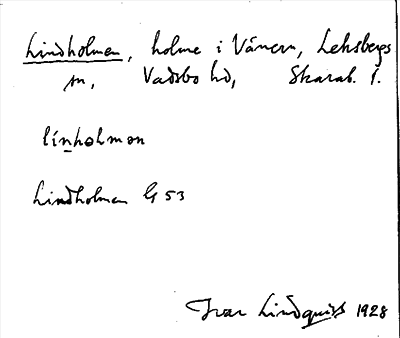 Lindholmen, holme i Vänern, Leksbergs
sn, Vadsbo hd, Skarab. l.
línholmən
Lindholmen G 53
Ivar Lindquist 1928